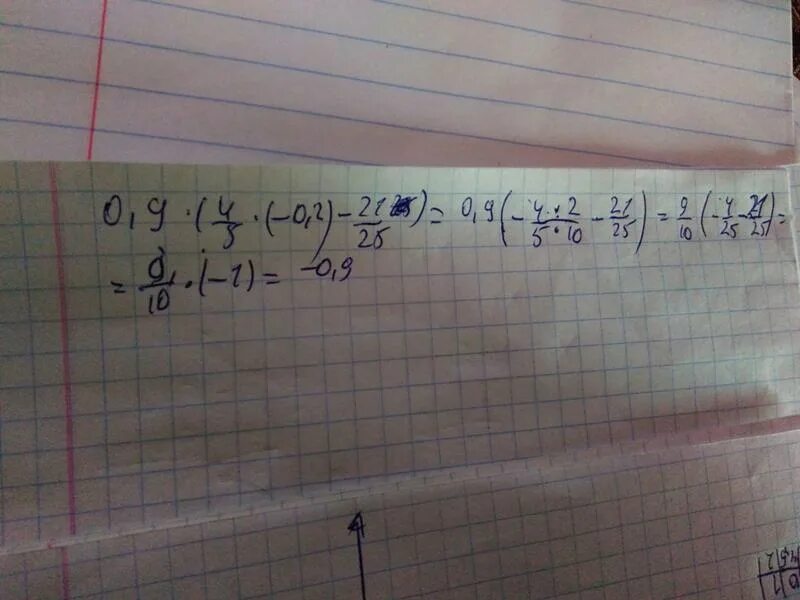 0,9 · (4/5 · (-0,2) - 21/25) = 0,9 (- 4·2/5·10 - 21/25) = 9/10 (- 4/25 - 21/25) =
= 9/10 · (-1) = -0,9